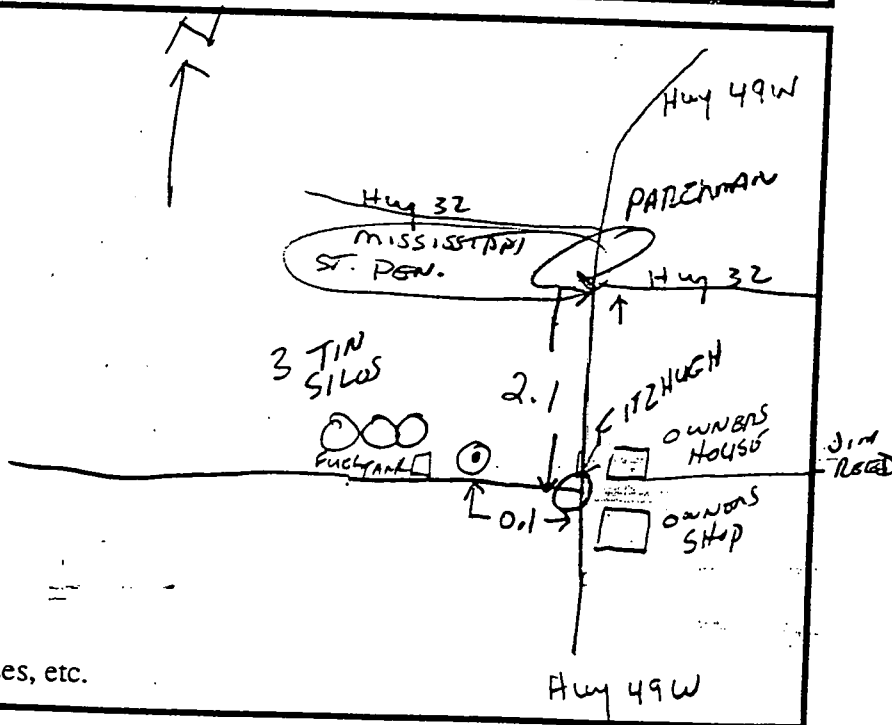 N
Hwy 49W
PARCHMAN
Hwy 32
MISSISSIPPI
ST. PEN.
Hwy 32
3 TIN
SILOS
2.1
FITZHUGH
OWNERS
HOUSE
JIM
REED
FUEL TANK
0.1
OWNERS
SHOP
es, etc.
Hwy 49W